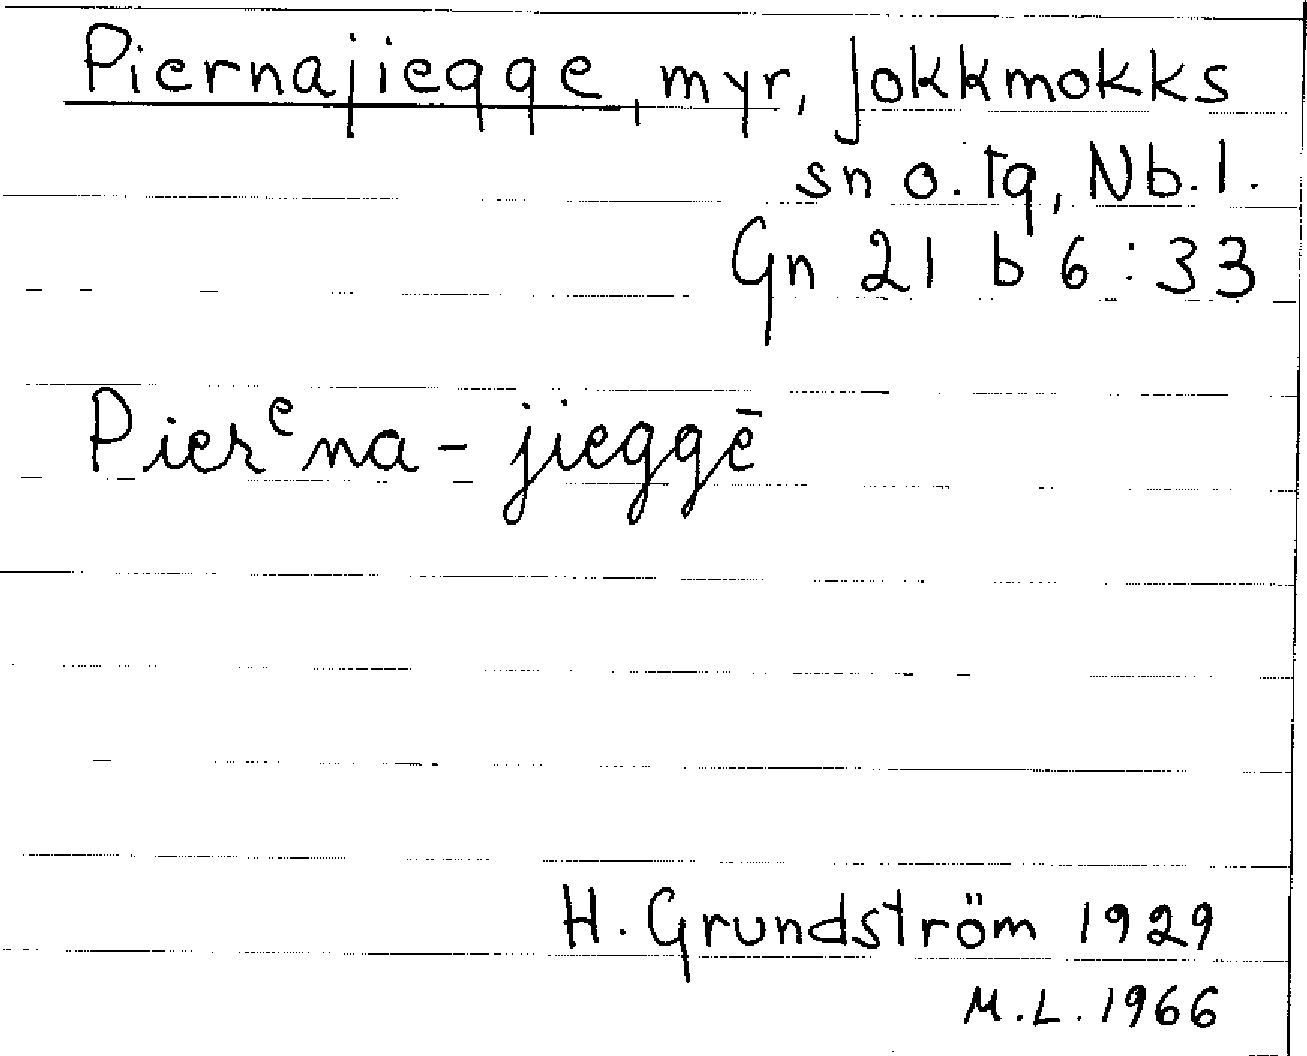 Piernajiegge, myr, Jokkmokks
sn o. tg, Nb.l.
Gn 21 b 6:33
Pierᵉna-jieggē
H. Grundström 1929
M.L. 1966